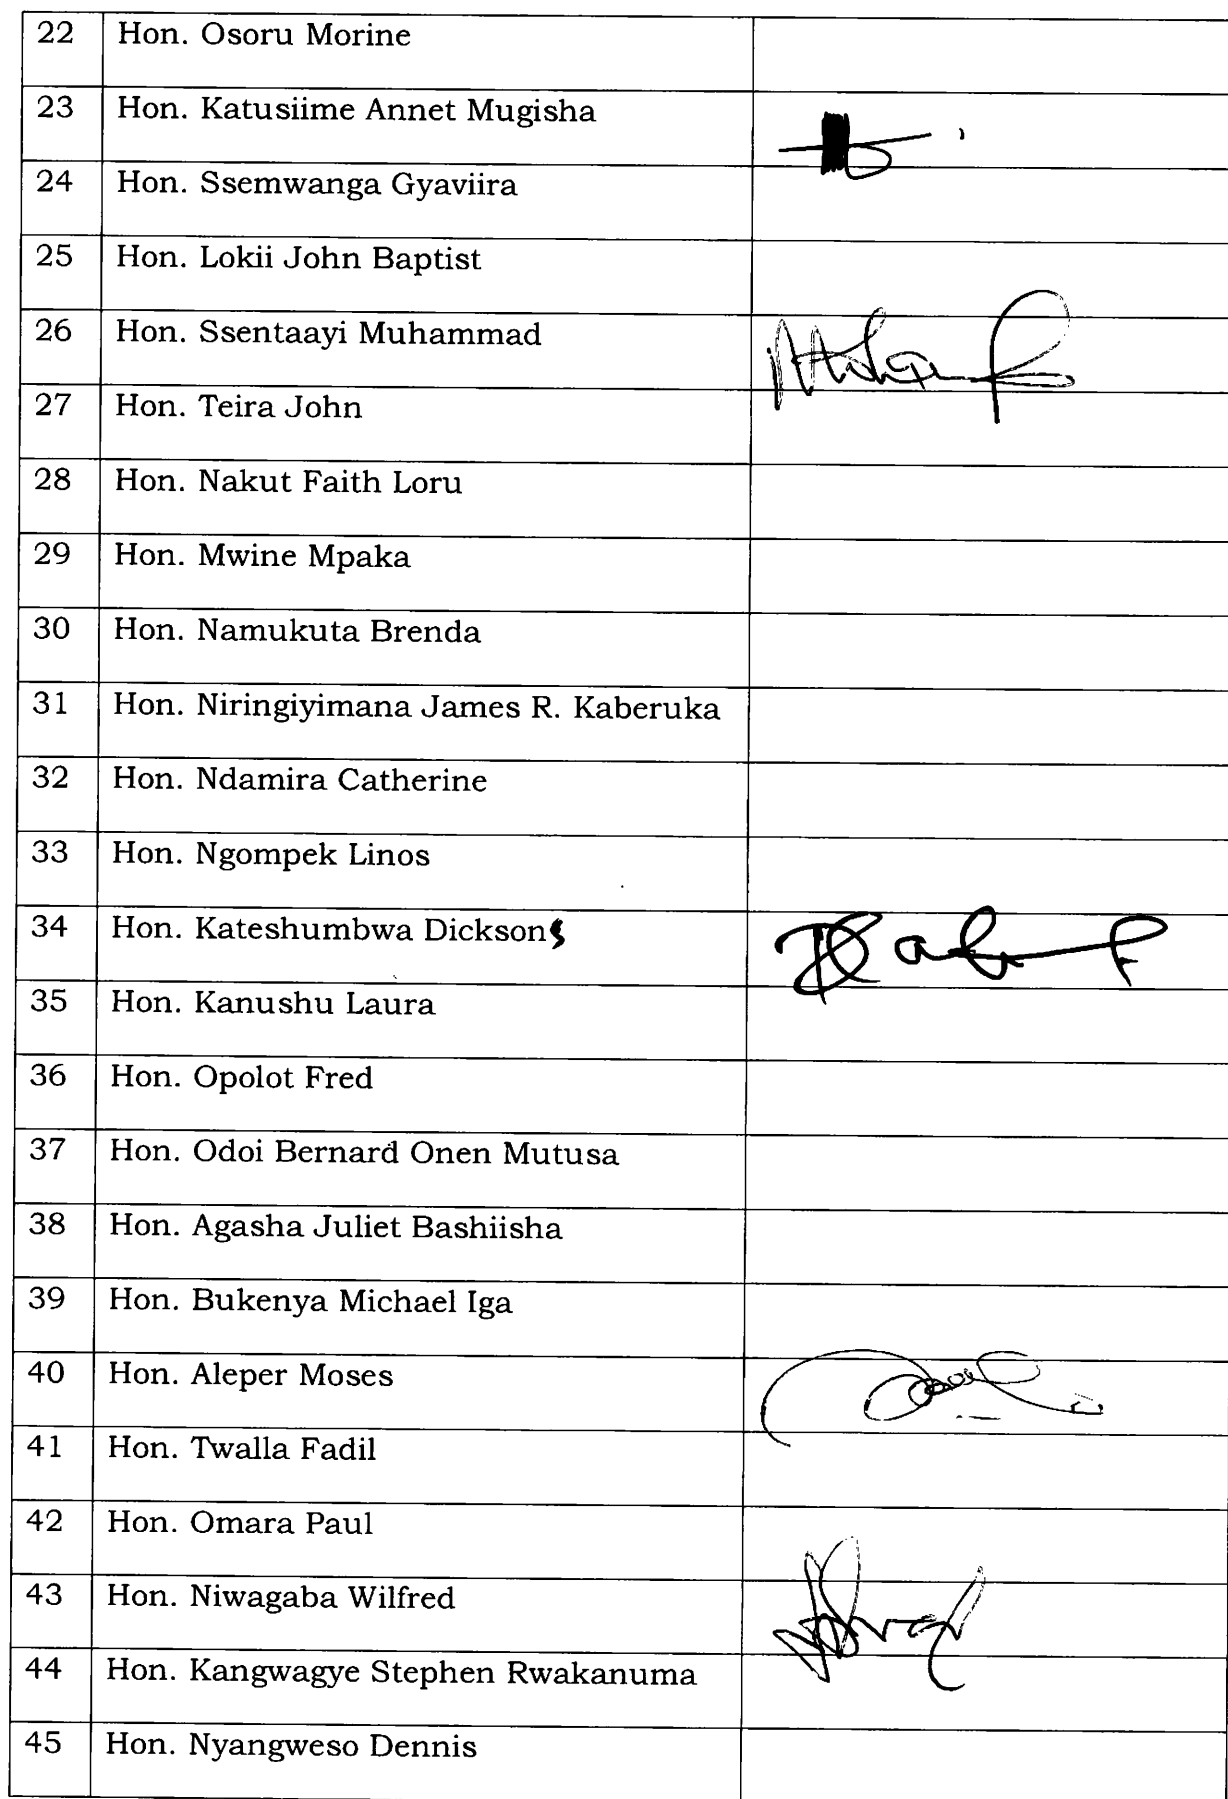 22 Hon. Osoru Morine
23 Hon. Katusiime Annet Mugisha
24 Hon. Ssemwanga Gyaviira
25 Hon. Lokii John Baptist
26 Hon. Ssentaayi Muhammad
27 Hon. Teira John
28 Hon. Nakut Faith Loru
29 Hon. Mwine Mpaka
30 Hon. Namukuta Brenda
31 Hon. Niringiyimana James R. Kaberuka
32 Hon. Ndamira Catherine
33 Hon. Ngompek Linos
34 Hon. Kateshumbwa Dicksons
35 Hon. Kanushu Laura
36 Hon. Opolot Fred
37 Hon. Odoi Bernard Onen Mutusa
38 Hon. Agasha Juliet Bashiisha
39 Hon. Bukenya Michael Iga
40 Hon. Aleper Moses
41 Hon. Twalla Fadil
42 Hon. Omara Paul
43 Hon. Niwagaba Wilfred
44 Hon. Kangwagye Stephen Rwakanuma
45 Hon. Nyangweso Dennis